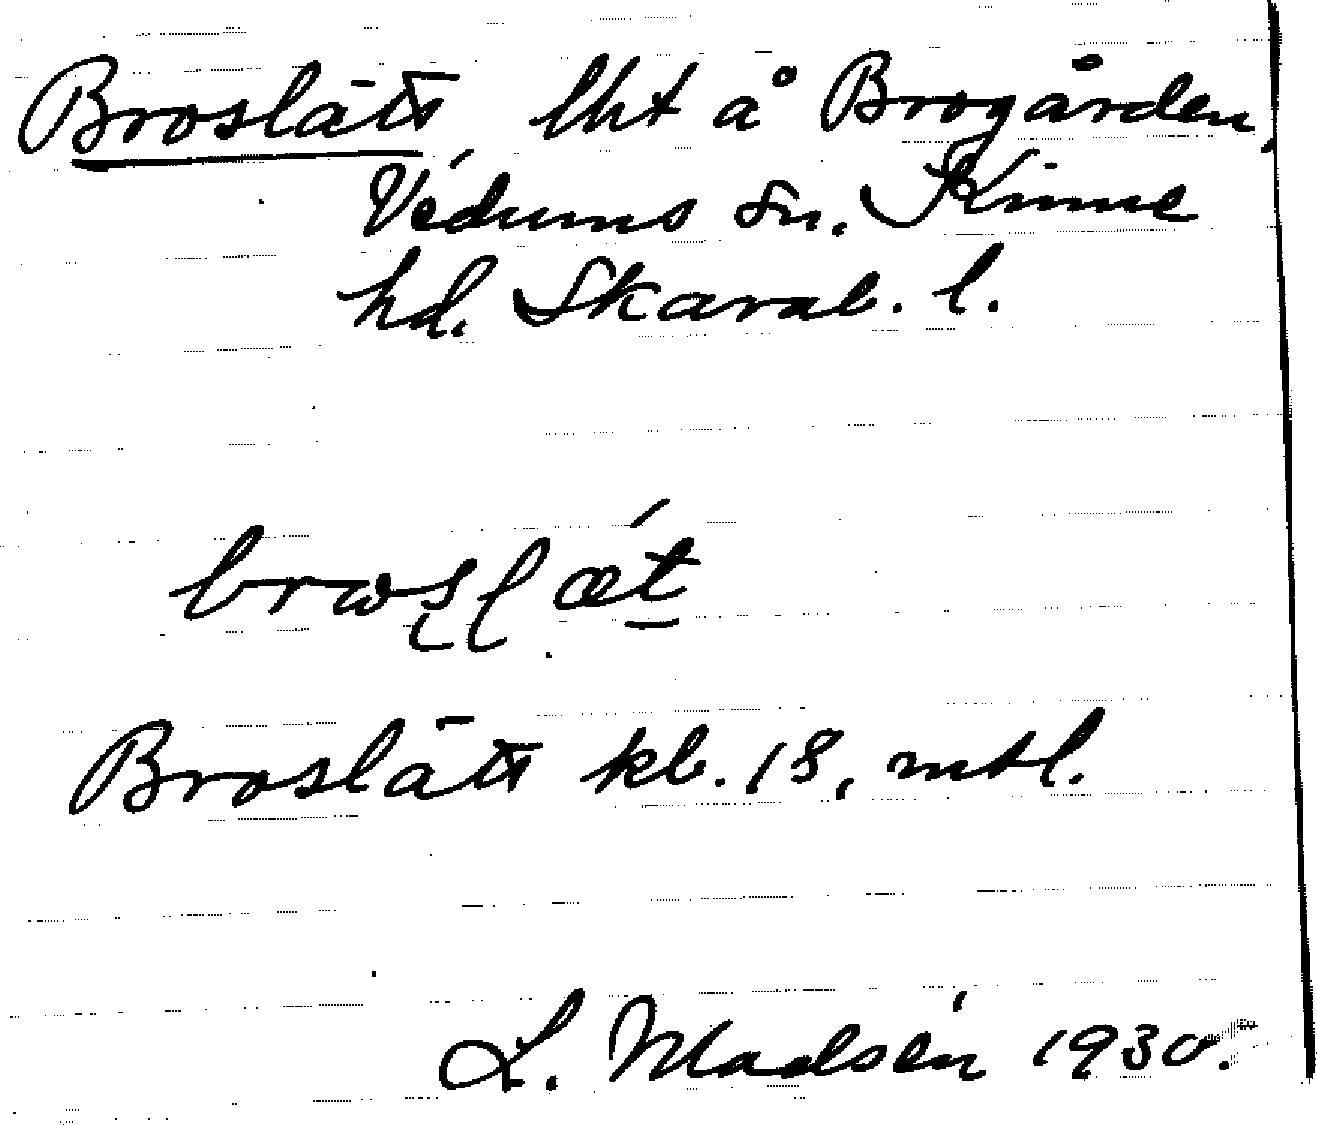 Broslätt, lht å Brogården,
Vedums sn. Kinne
hd. Skarab. l.
Broslätt kb. 18, mtl.
L. Madsén 1930.